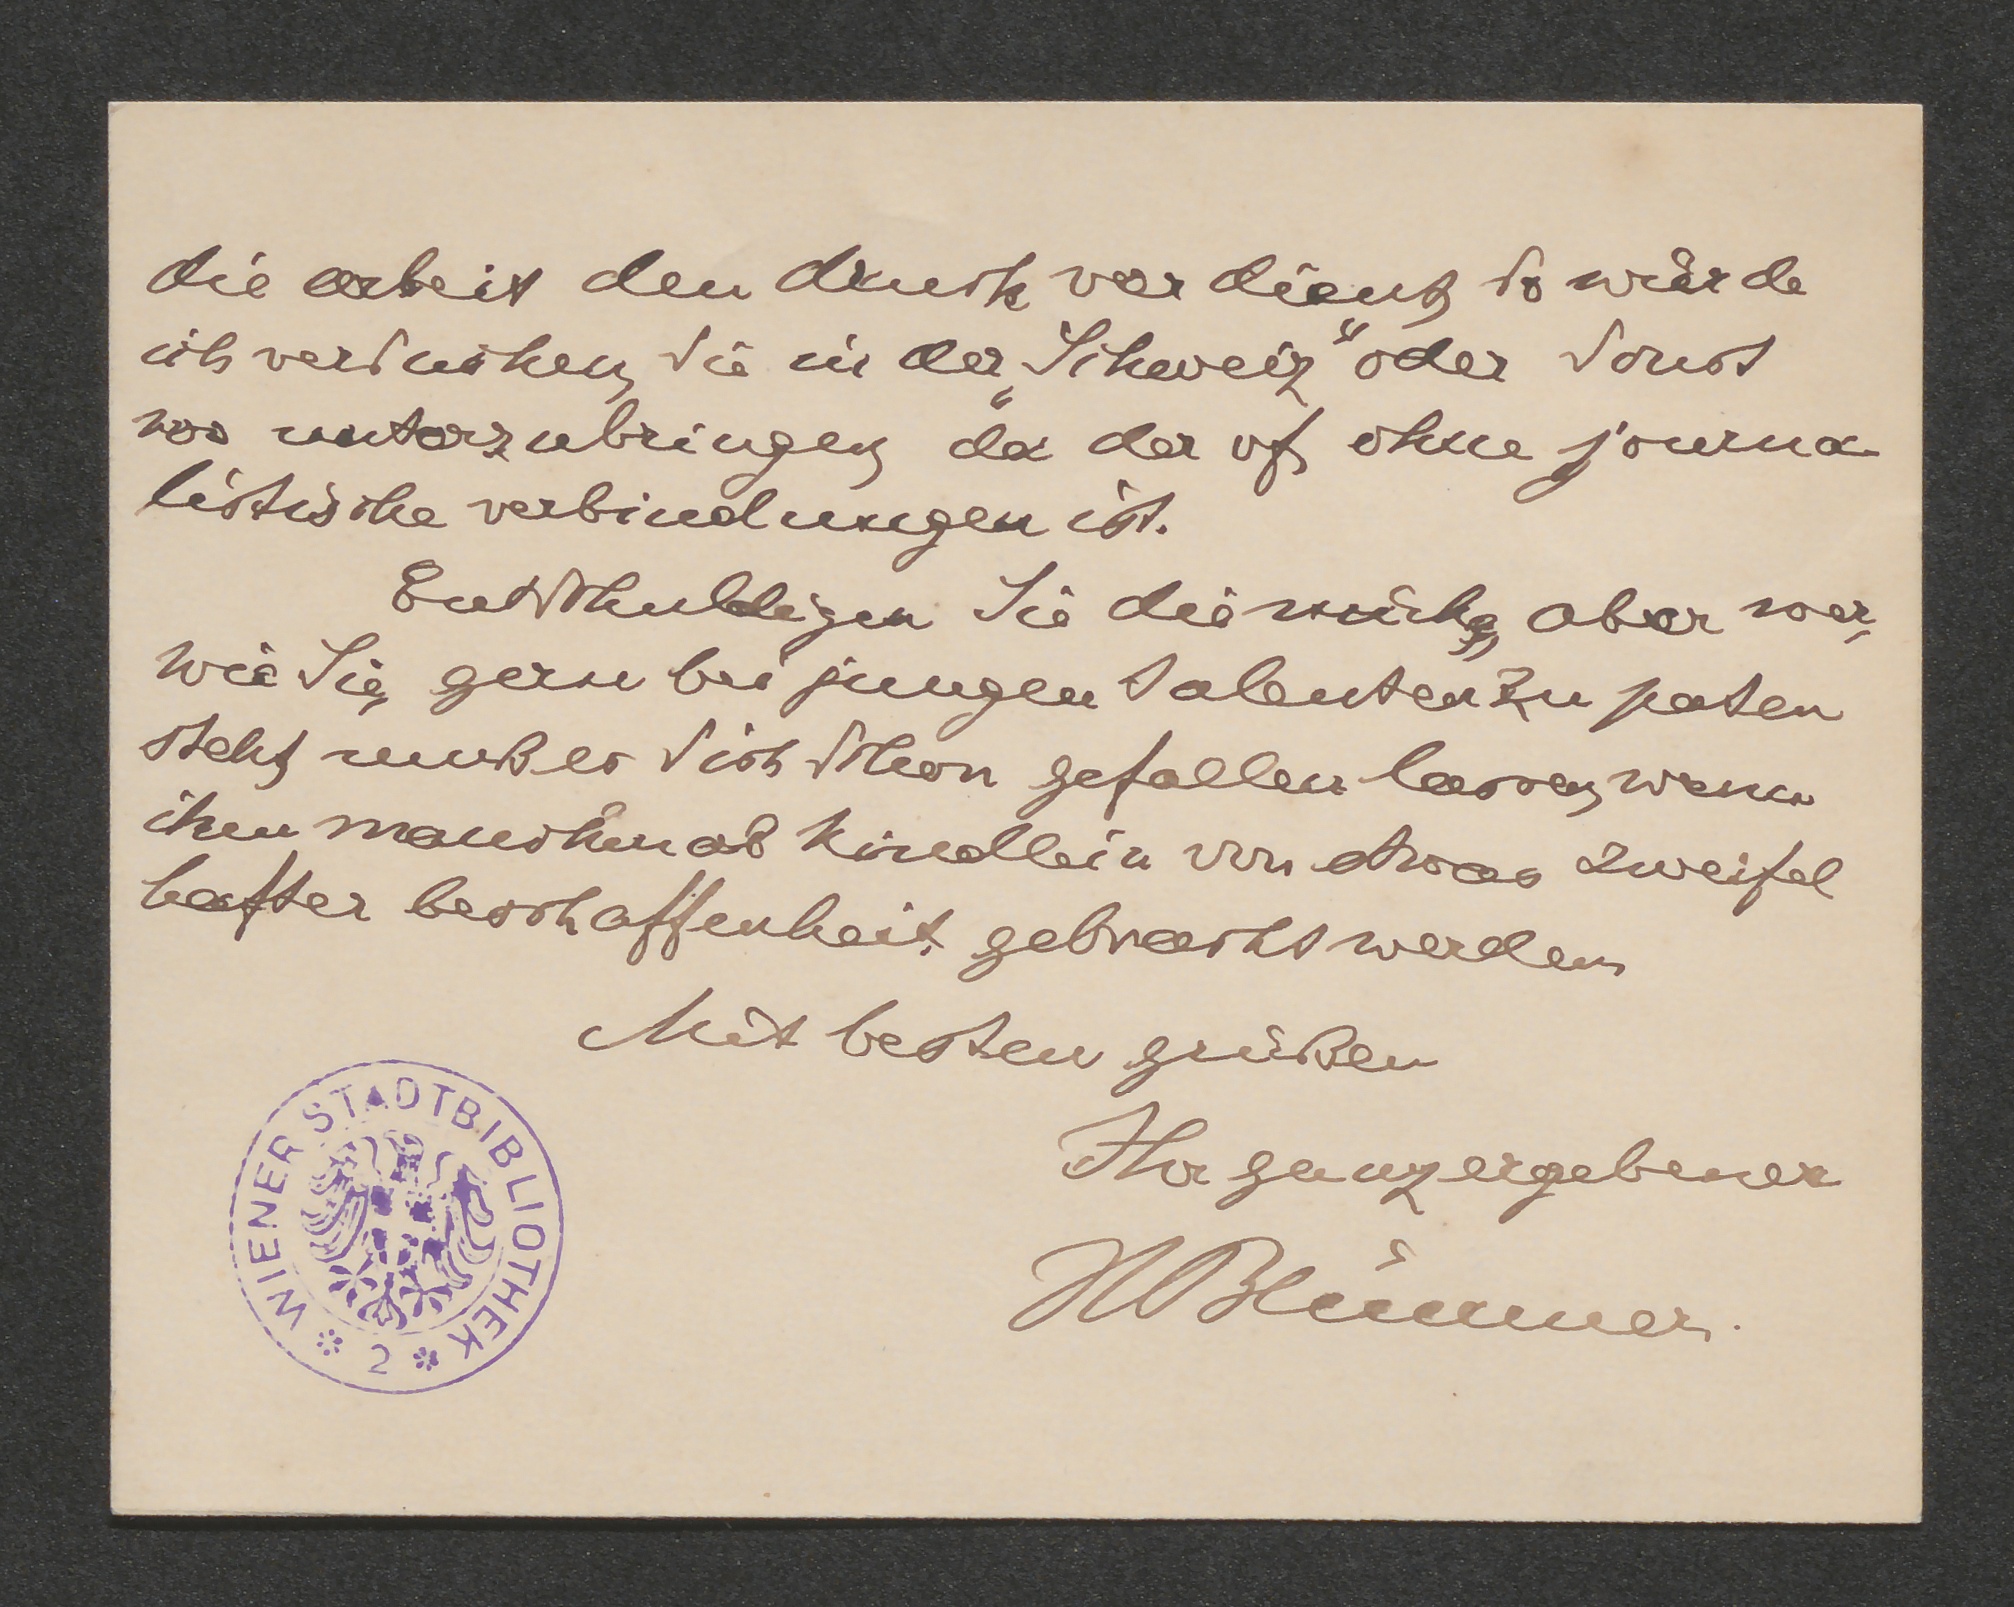 die arbeit den druck verdient, so würde
ich versuchen, sie in der „Schweiz“ oder sonst
wo unterzubringen, da der vf. ohne journa
listische verbindungen ist.
Entschuldigen Sie die mühe, aber wer,
wie Sie, gern bei jungen talenten zu paten
steht, muß es sich schon gefallen lassen, wenn
ihm manchmal kindlein von etwas zweifel
hafter beschaffenheit gebracht werden.
Mit besten grüßen
Ihr ganz ergebener
HBlümner.
WIENER STADTBIBLIOTHEK
2